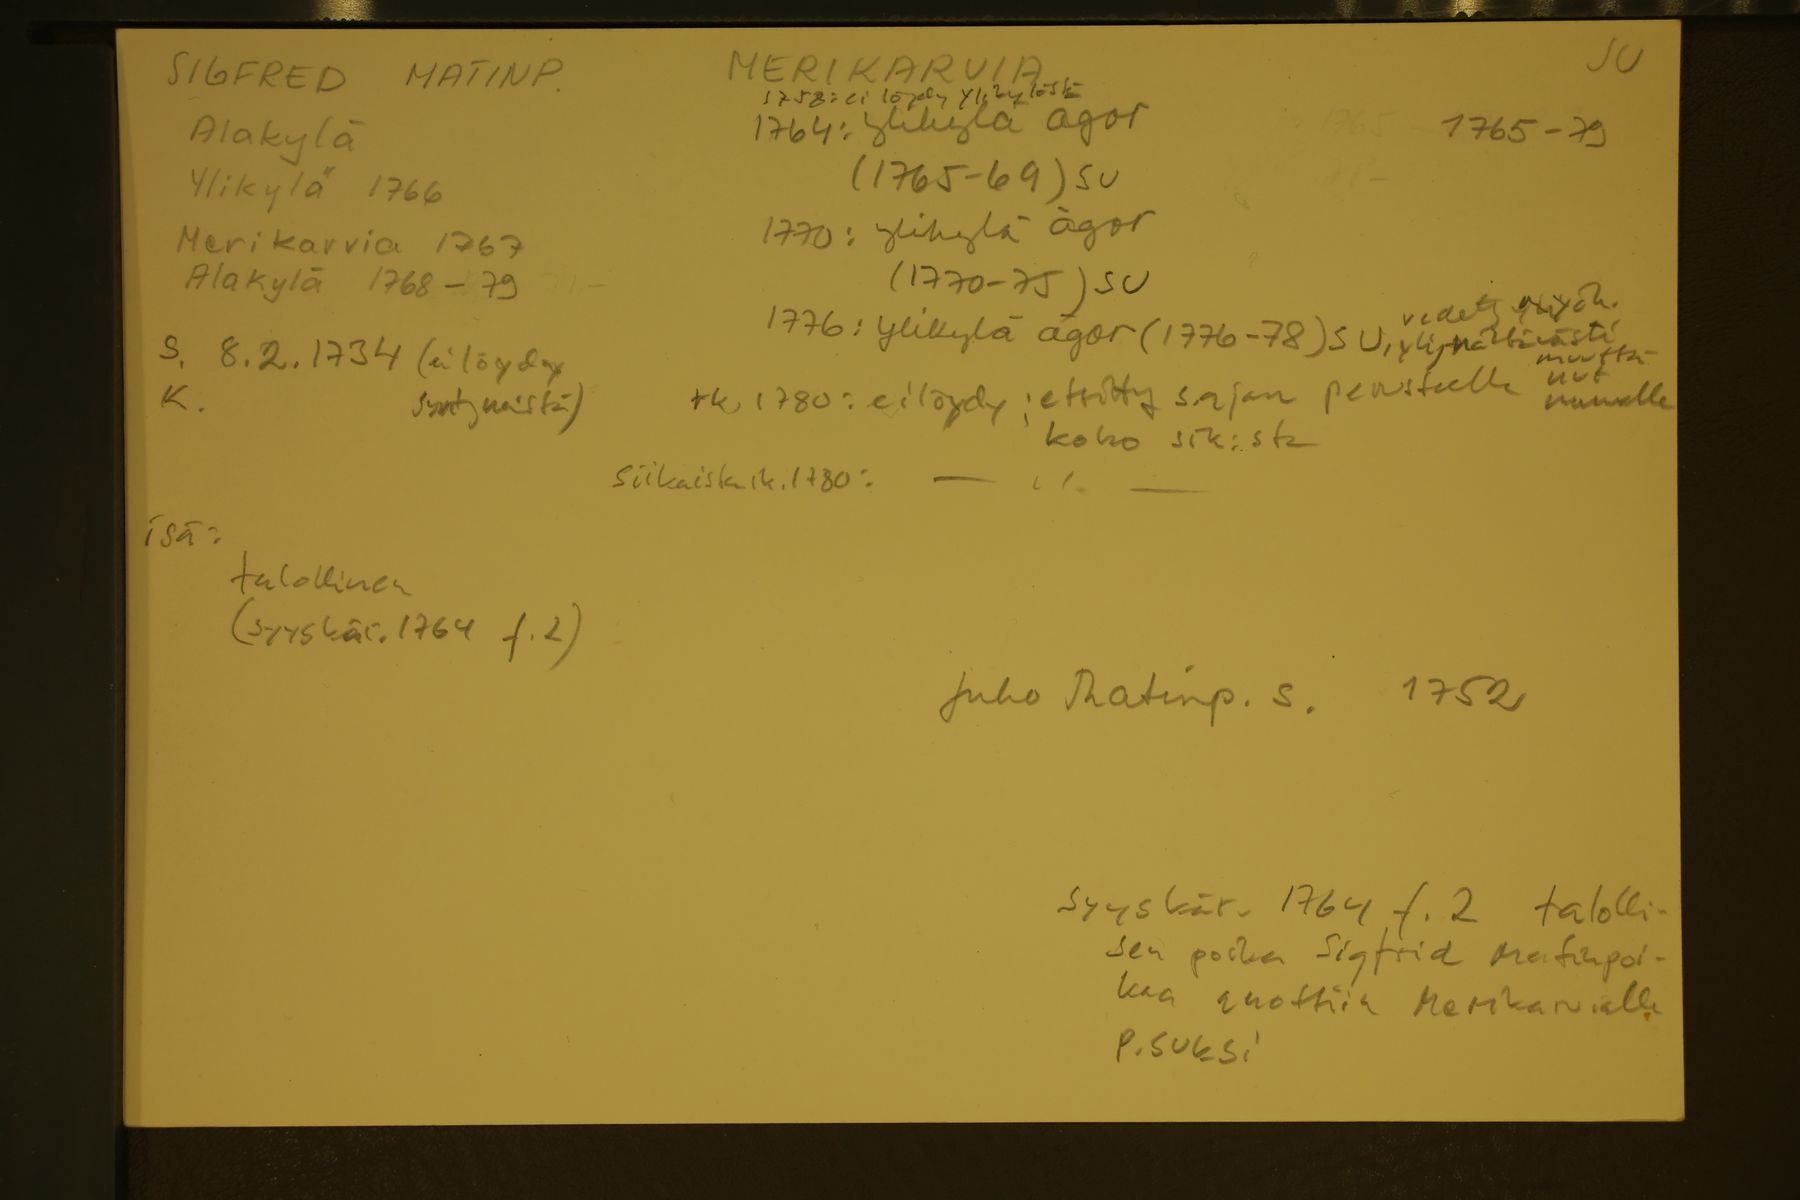 SIGFRED MATINP. MERIKARVIA SU
1758: ei löydy ylikylästä
Alakylä 1764: ylikylä ägor 1765-79
Ylikylä 1766 (1765-69) SU
Merikarvia 1767 1770: ylikylä ägor
Alakylä 1768-79 (1770-75) SU
1776: ylikylä ägor (1776-78) SU,
muutta-
nut
muualle
S. 8.2.1734 (ei löydy
syntyneistä)
K.
rk. 1780: ei löydy; etsitty s.ajan perusteella
koko srk:sta
Siikaisten rk. 1780: — " —
isä:
talollinen
(syyskär. 1764 f. 2)
Juho Matinp. s. 1752
syyskär. 1764 f. 2 talolli-
sen poika Sigfrid Matinpoi-
kaa Merikarvialle
p.suksi